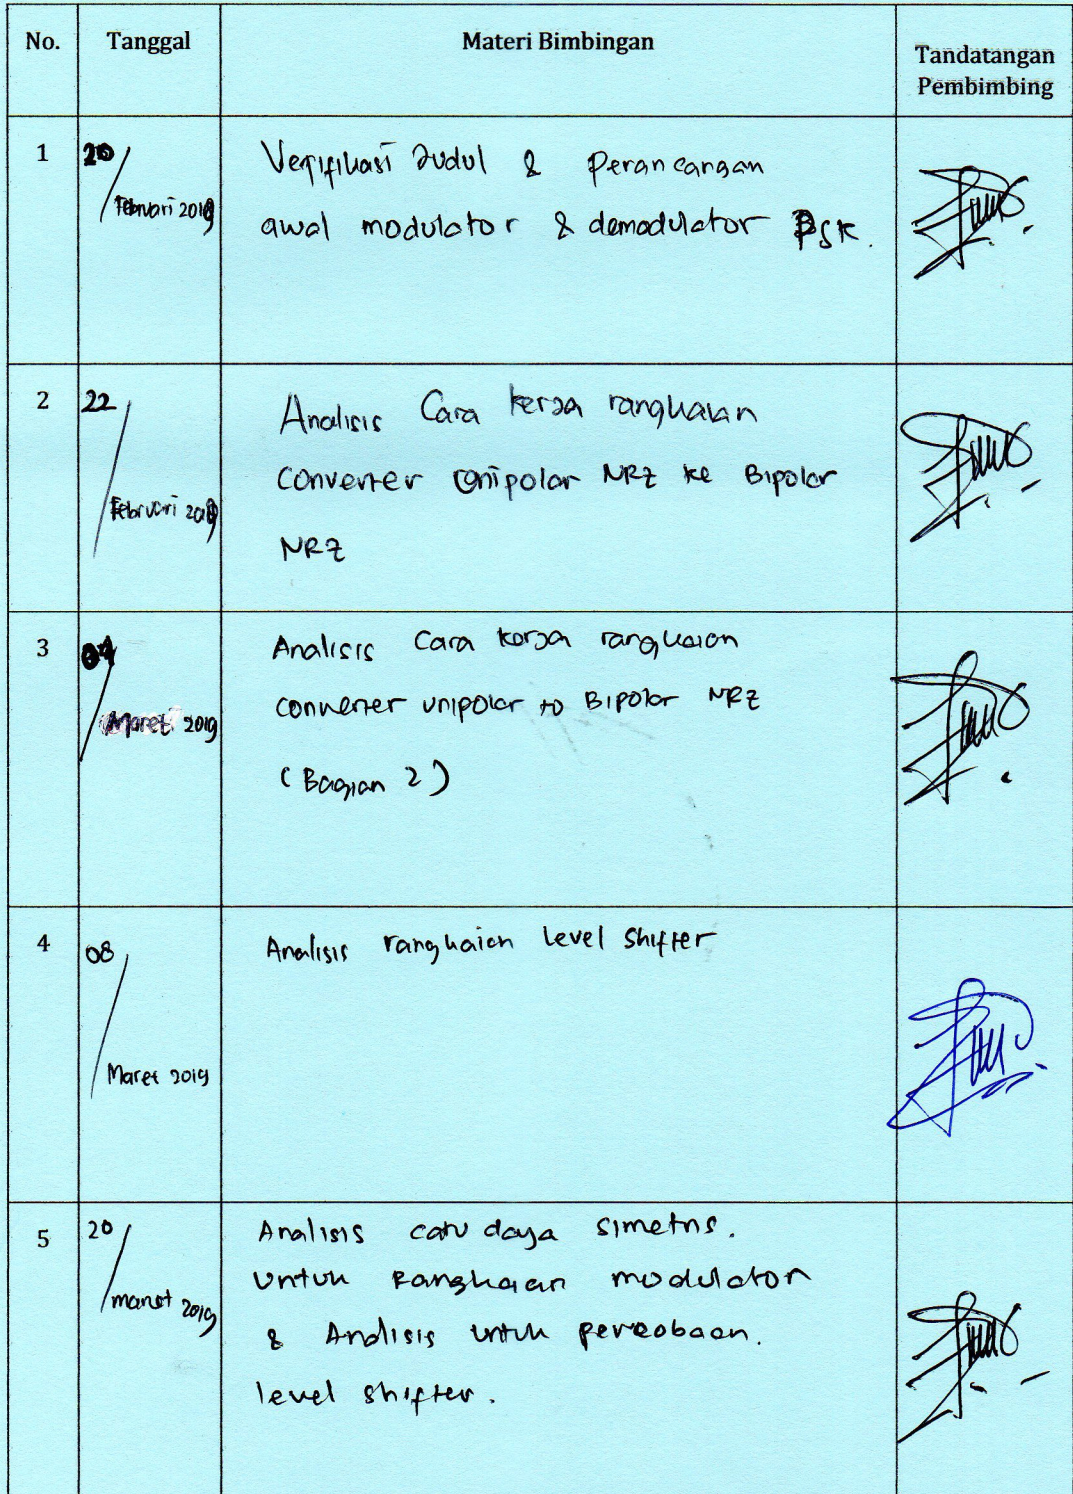 No. Tanggal Materi Bimbingan Tandatangan
Pembimbing
1 20/
Februari 2019
Verifikasi Judul & perancangan
awal modulator & demodulator PSK.
2 22/
Februari 2019
Analisis Cara kerja rangkaian
Converter Unipolar NRZ ke Bipolar
NRZ
3 04/
Maret 2019
Analisis Cara kerja rangkaian
converter unipolar to Bipolar NRZ
(Bagian 2)
4 08/
Maret 2019
Analisis rangkaian Level Shifter
5 20/
maret 2019
Analisis catu daya simetris.
untuk Rangkaian modulator
& Analisis untuk percobaan.
level shifter.